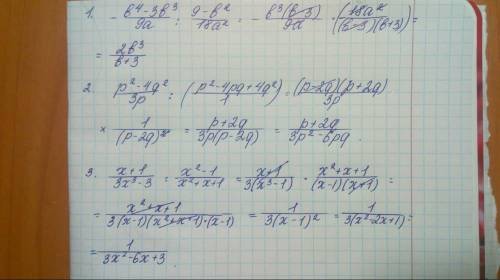 1. - (в⁴-3в³)/9a : (9-в²)/18a² = - в³(в-3)/9a · (18a²)/((в-3)(в+3)) =
= 2в³/(в+3)
2. (p²-4q²)/3p : ((p²-4pq+4q²)/1) = (p-2q)(p+2q)/3p
× 1/(p-2q)² = (p+2q)/3p(p-2q) = (p+2q)/(3p²-6pq).
3. (x+1)/(3x³-3) : (x²-1)/(x²+x+1) = (x+1)/3(x³-1) · (x²+x+1)/(x-1)(x+1) =
= (x²+x+1)/3(x-1)(x²+x+1)·(x-1) = 1/3(x-1)² = 1/3(x²-2x+1) =
= 1/(3x²-6x+3).